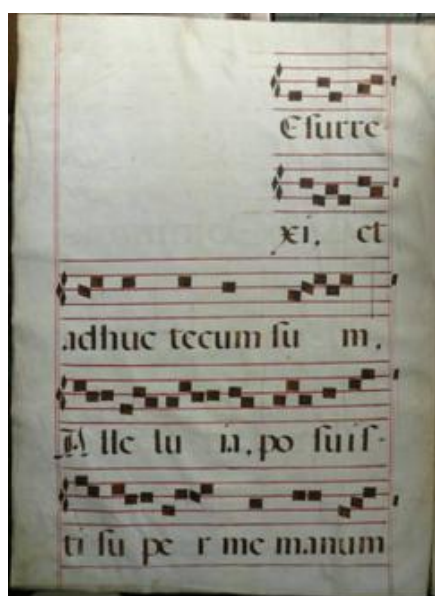 Esurre
xi, et
adhuc tecum su m,
Alle lu ia, po suis-
ti su pe r me manum